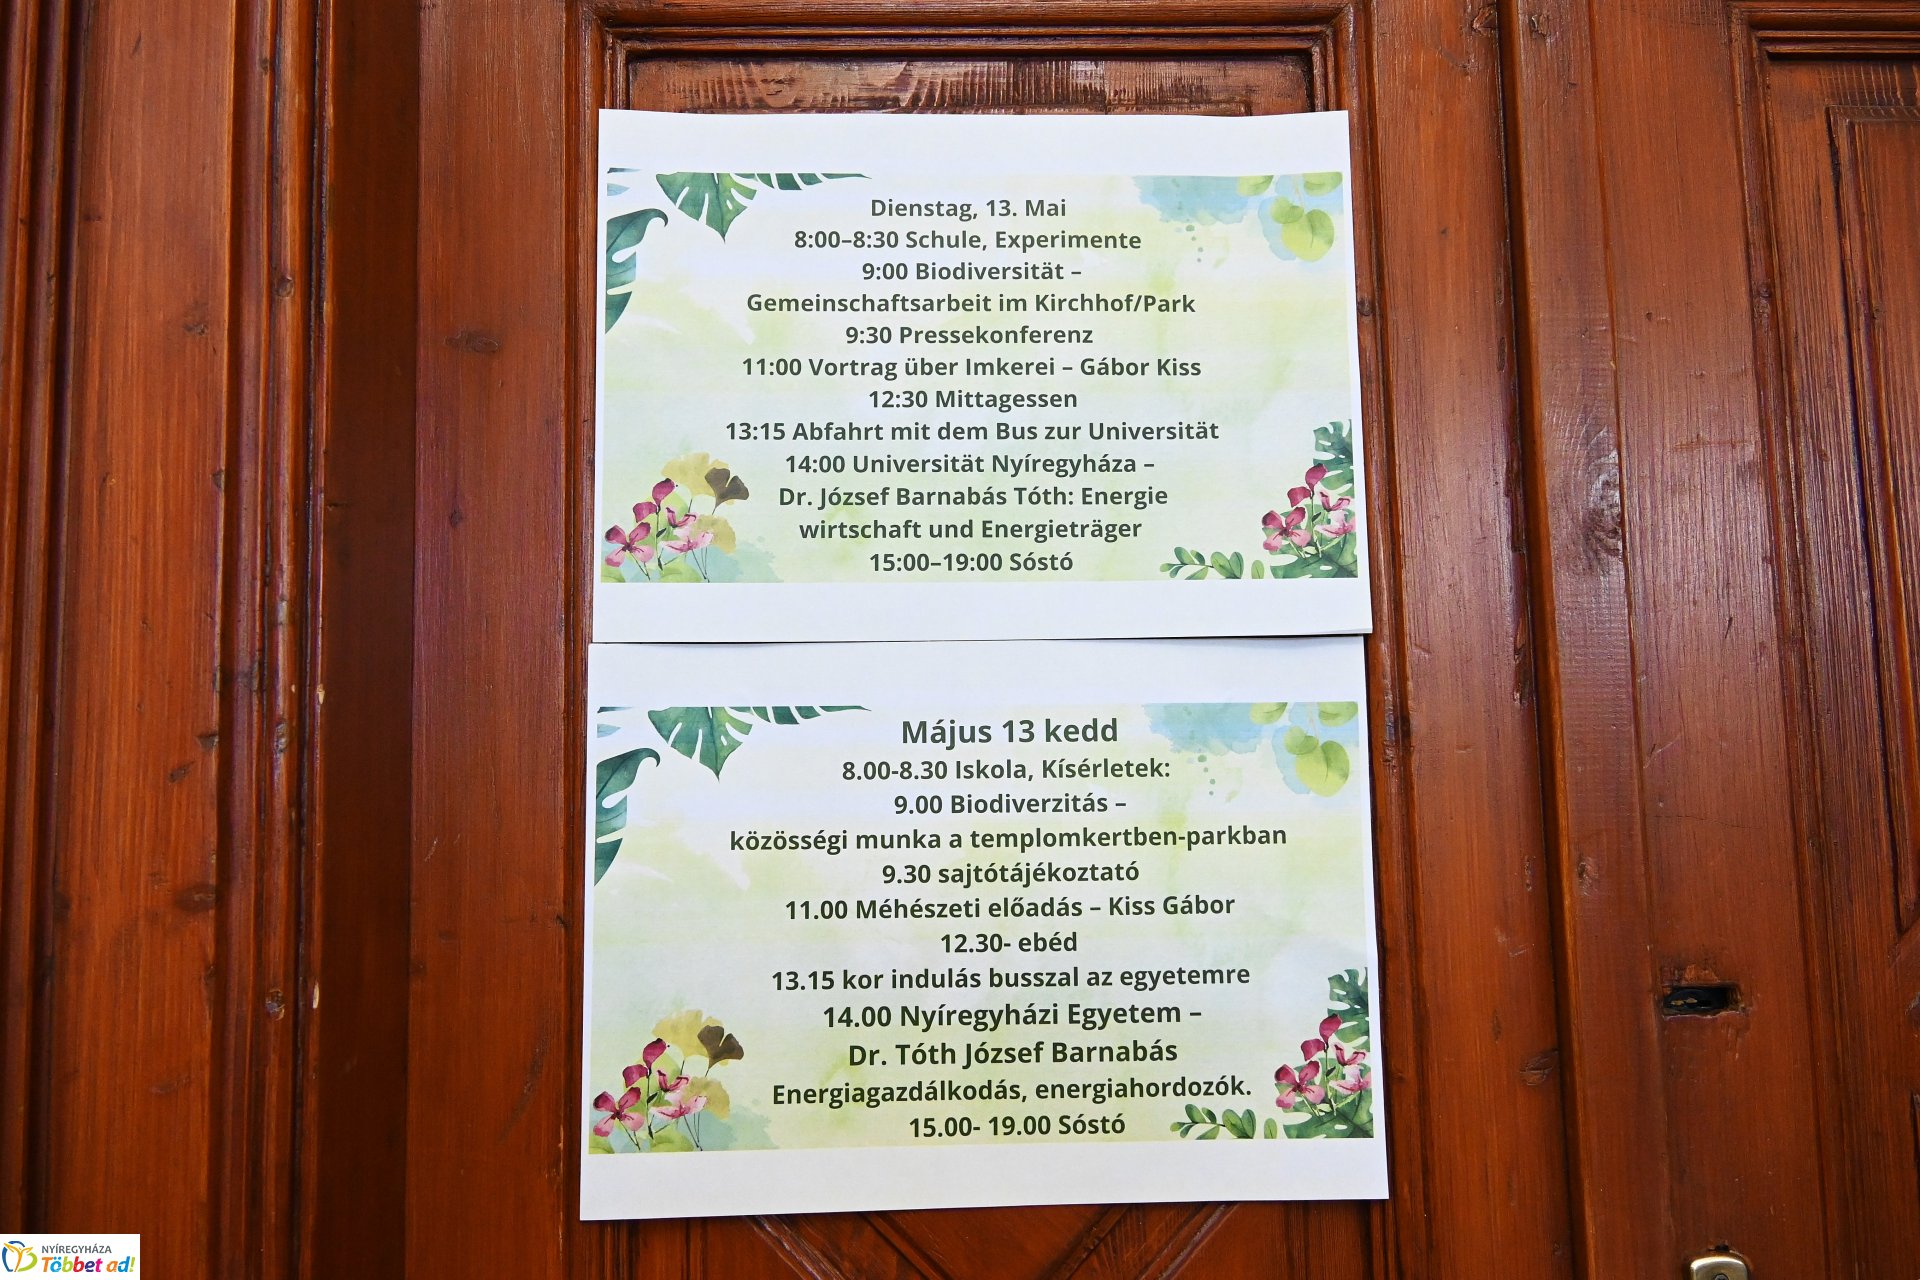 Dienstag, 13. Mai
8:00–8:30 Schule, Experimente
9:00 Biodiversität –
Gemeinschaftsarbeit im Kirchhof/Park
9:30 Pressekonferenz
11:00 Vortrag über Imkerei – Gábor Kiss
12:30 Mittagessen
13:15 Abfahrt mit dem Bus zur Universität
14:00 Universität Nyíregyháza –
Dr. József Barnabás Tóth: Energie
wirtschaft und Energieträger
15:00–19:00 Sóstó
Május 13 kedd
8.00-8.30 Iskola, Kísérletek:
9.00 Biodiverzitás –
közösségi munka a templomkertben-parkban
9.30 sajtótájékoztató
11.00 Méhészeti előadás – Kiss Gábor
12.30- ebéd
13.15 kor indulás busszal az egyetemre
14.00 Nyíregyházi Egyetem –
Dr. Tóth József Barnabás
Energiagazdálkodás, energiahordozók.
15.00- 19.00 Sóstó
NYÍREGYHÁZA
Többet ad!